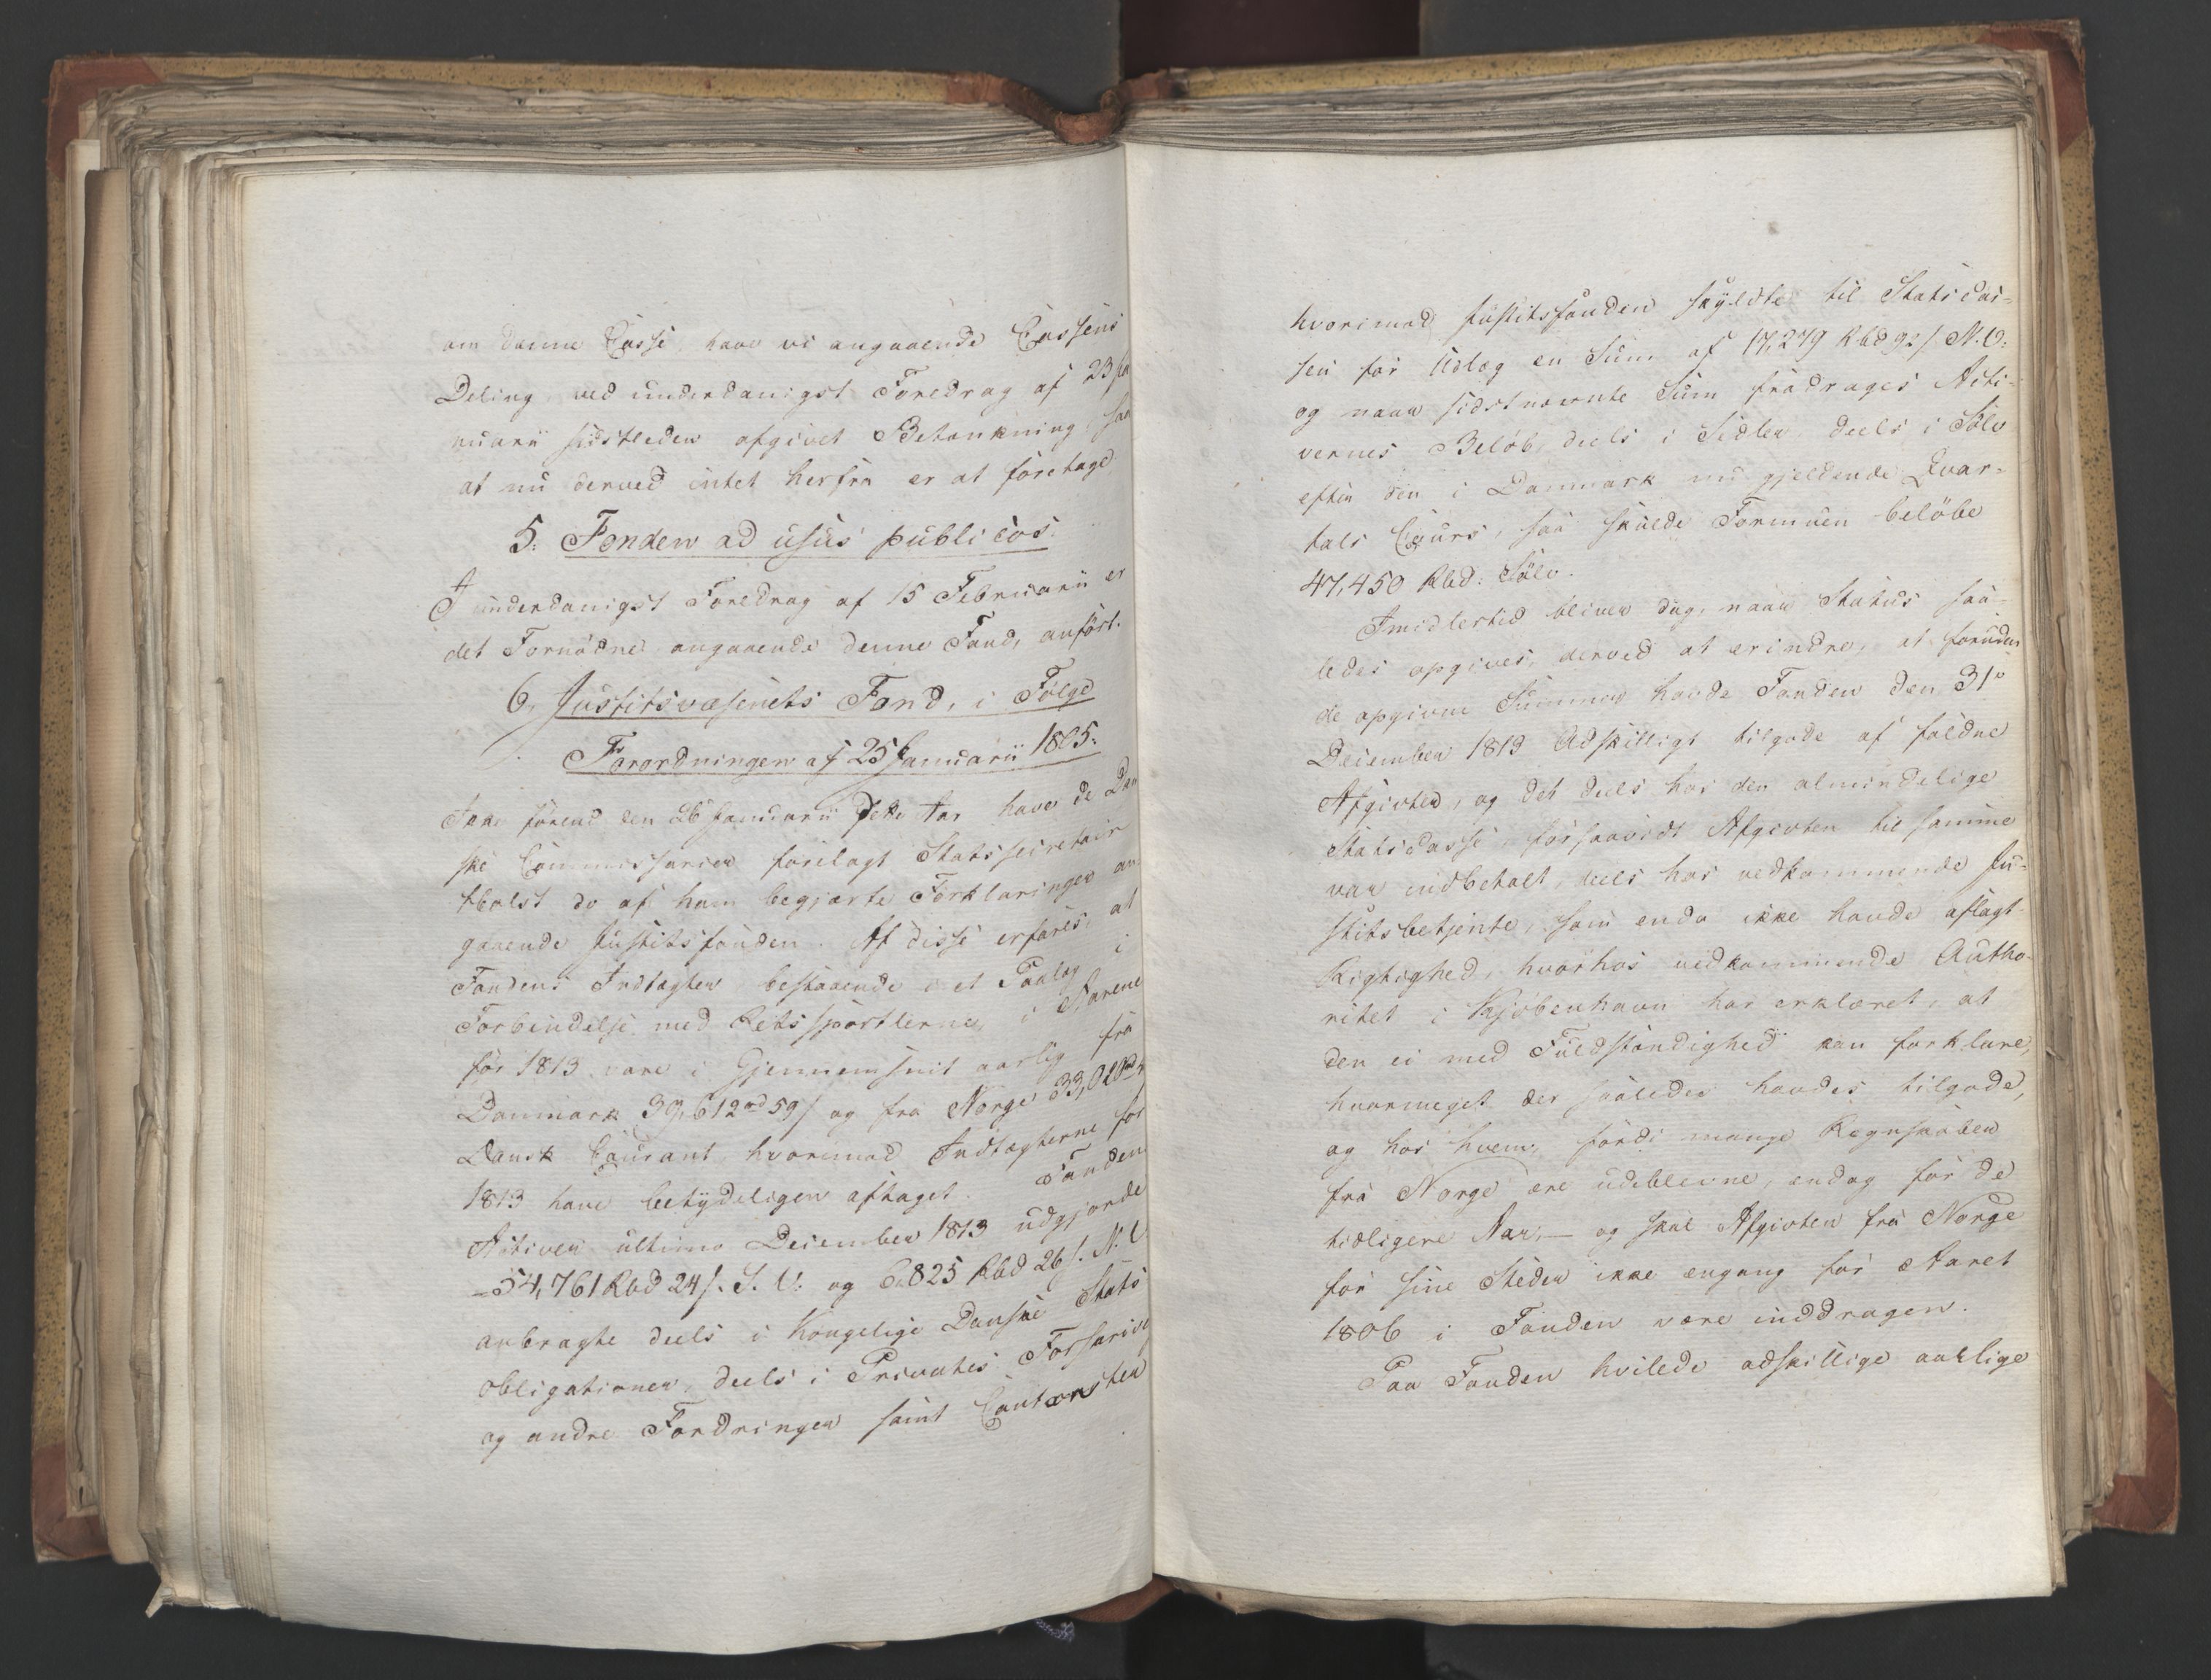 om denne Casse, have vi angaaende Cassens
Deling ved underdanigst Foredrag af 23
nuarii sidstleden afgivet Betænkning, saa
at nu derved intet herfra er at foretage
5. Fonden ad usus publicos.
I underdanigst Foredrag af 15 Februarii er
det Fornødne angaaende denne Fond, anført.
6, Justitsvæsenets Fond, i Følge
Forordningen af 25 Januarii 1805.
Ikke førend den 26 Januarii dette Aar have de Dan
ske Commissarier forelagt Statssecretair
Holst de af ham begjærte Forklaringer an-
gaaende Justitsfonden. Af disse erfares, at
Fondens Indtægter, bestaaende i et Paalæg i
Forbindelse med Retssportlerne, i Aarene
før 1813 vare i Gjennemsnit aarlig fra
Danmark 39,612 rd 59 s og fra Norge
Dansk Courant, hvorimod Indtægterne for
1813 have betydeligen aftaget. Fondens
Activer ultimo December 1813 udgjorde
54,761 Rbd 24 s. S. V. og 825 Rbd 26 s. N. V
anbragte deels i Kongelige Danske Stats
obligationer, deels i Privates Forskrivn
og andre Fordringer samt
hvorimod Justitsfonden skyldte til Statscas-
sen for Udlæg en Sum af 17,279 Rbd 92 s. N. V.
og naar sidstnævnte Sum fradrages Acti-
vernes Beløb, deels i Sedler deels i Sølv
efter den i Danmark nu gjeldende Qvar-
tals Cours, saa skulde Formuen beløbe
47,450 Rbd. Sølv.
Imidlertid bliver dog, naar Status saa-
ledes opgives, derved at erindre, at foruden
de opgivne Summer havde Fonden den 31te
December 1813 Adskilligt tilgode af faldne
Afgivter, og det deels hos den almindelige
Statscasse, forsaavidt Afgivten til samme
var indbetalt, deels hos vedkommende Ju-
stitsbetjente, som enda ikke havde aflagt
Rigtighed, hvorhos vedkommende Autho-
ritet i Kjøbenhavn har erklæret, at
den ei med Fuldstændighed kan forklare,
hvormeget der saaledes havdes tilgode,
og hos hvem, fordi mange Regnskaber
fra Norge ere udeblevne, endog for de
tidligere Aar, — og skal Afgivten fra Norge
for sine Steder ikke engang for Aaret
1806 i Fonden være inddragen.
Paa Fonden hvilede adskillige aarlige